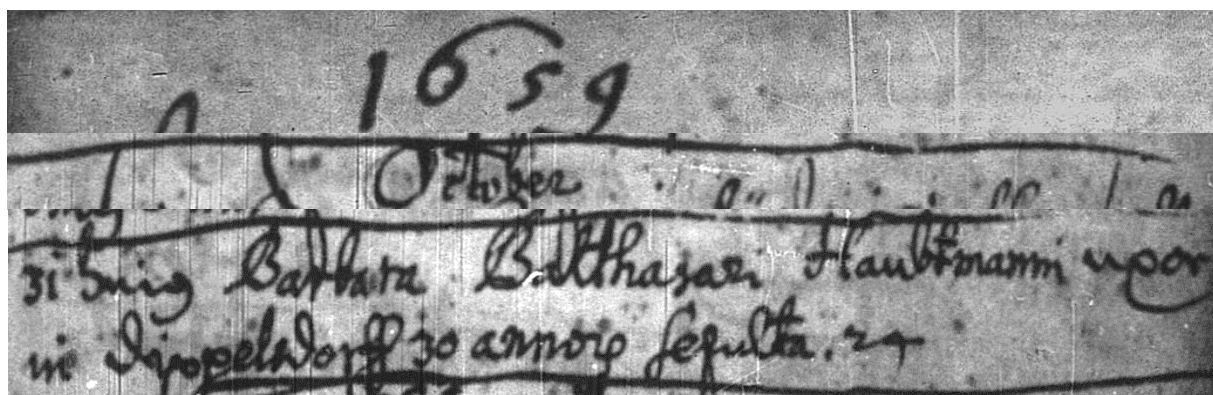 1659
October
31 hui9 Barbara Balthasari Haubtmanni uxor
in Dippelsdorff 30 annorū sepulta. 24